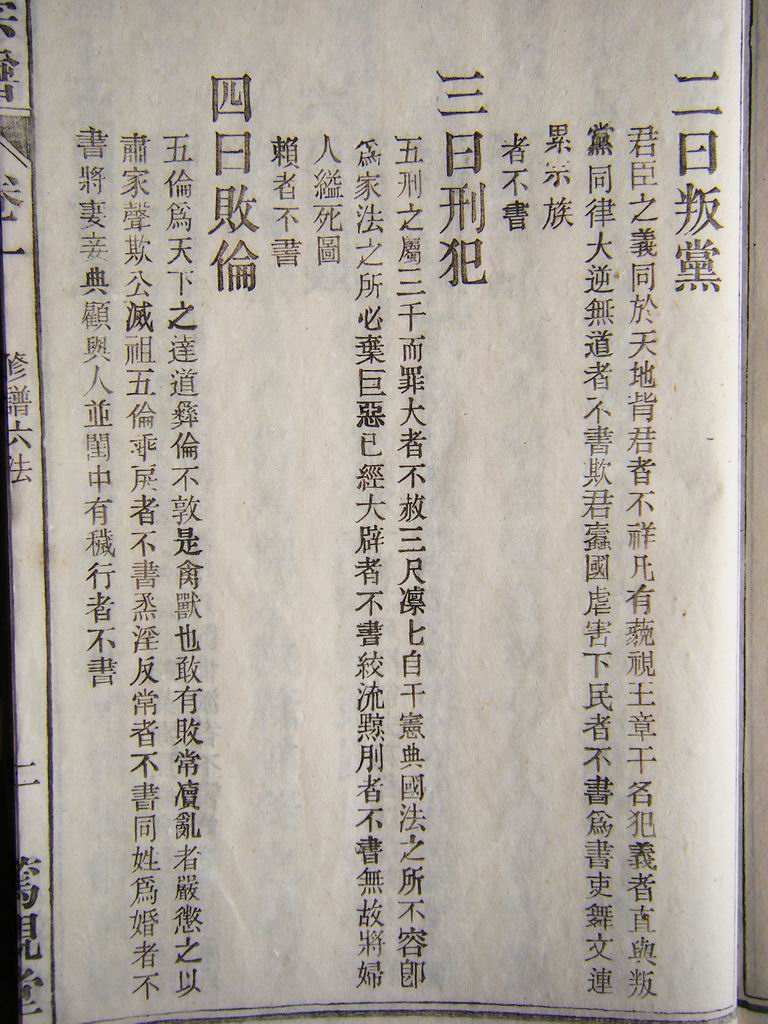 二曰叛黨
君臣之義同於天地背君者不祥凡有藐視王章干名犯義者直與叛
黨同律大逆無道者不書欺君蠹國虐害下民者不書爲書吏舞文連
累宗族
者不書
三曰刑犯
五刑之屬三千而罪大者不赦三尺凛七自干憲典國法之所不容卽
爲家法之所必棄巨惡已經大辟者不書絞流黥刖者不書無故將婦
人縊死圖
賴者不書
四曰敗倫
五倫爲天下之達道彝倫不敦是禽獸也敢有敗常瀆亂者嚴懲之以
肅家聲欺公滅祖五倫乖戾者不書烝淫反常者不書同姓爲婚者不
書將妻妾典顧與人並閨中有穢行者不書
卷一
修譜六法
二